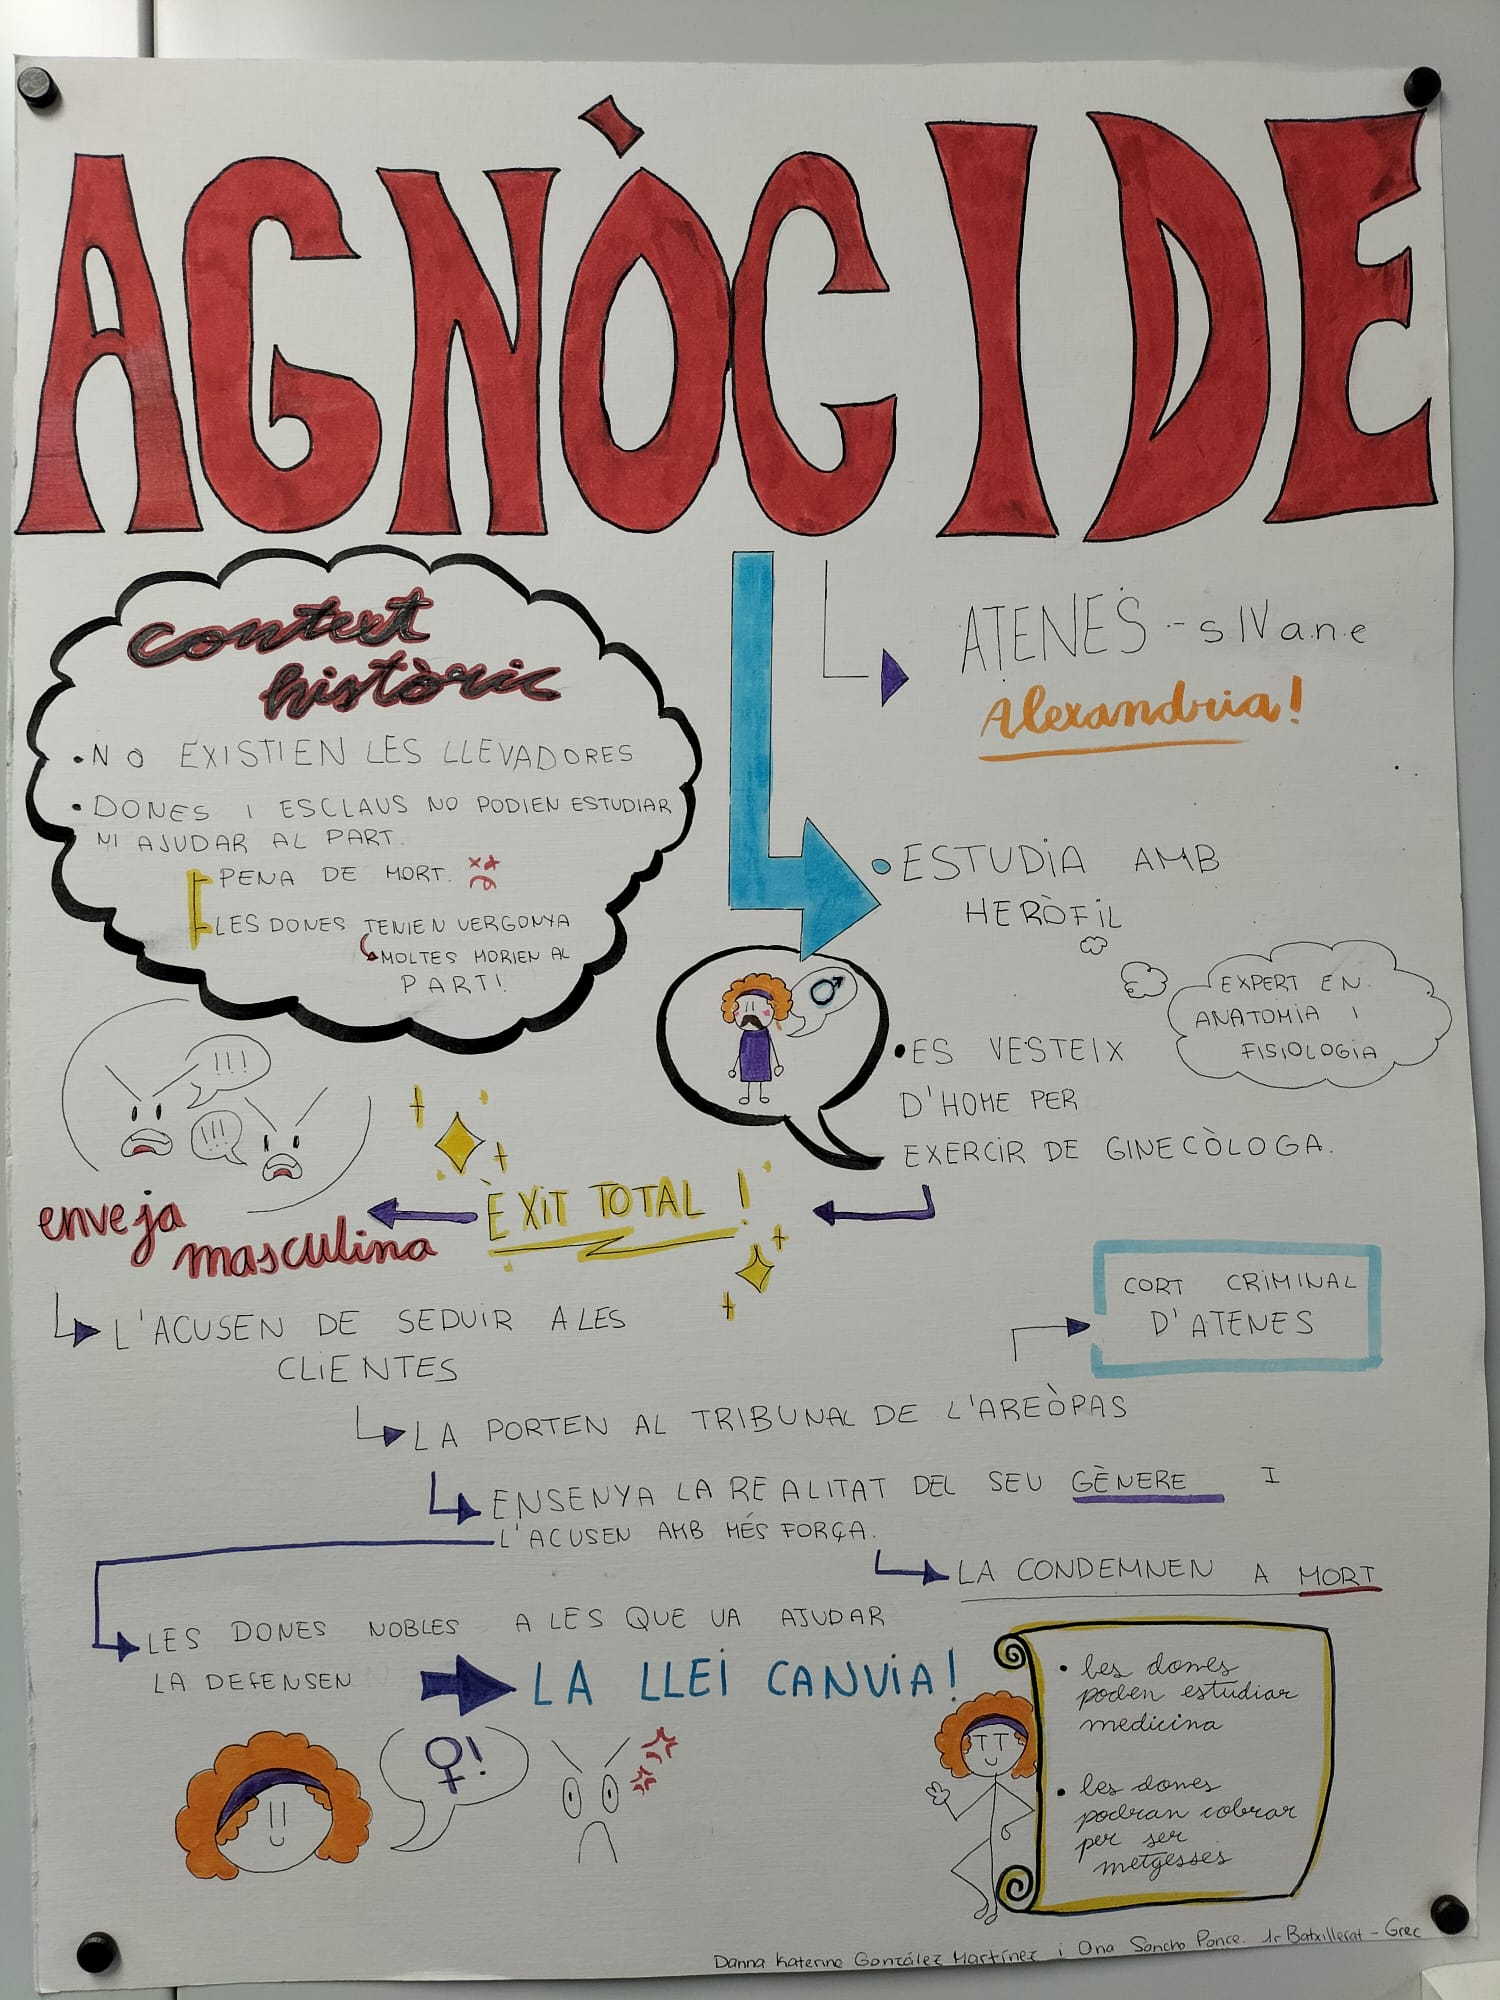 AGNÒCIDE
context
històric
• NO EXISTIEN LES LLEVADORES
• DONES I ESCLAUS NO PODIEN ESTUDIAR
NI AJUDAR AL PART.
PENA DE MORT.
LES DONES TENIEN VERGONYA
MOLTES MORIEN AL
PART!
ATENES - s IV a.n.e
Alexandria!
• ESTUDIA AMB
HERÒFIL
EXPERT EN
ANATOMIA I
FISIOLOGIA
♂
• ES VESTEIX
D'HOME PER
EXERCIR DE GINECÒLOGA.
ÈXIT TOTAL!
!!!
!!!
enveja
masculina
L'ACUSEN DE SEDUIR A LES
CLIENTES
LA PORTEN AL TRIBUNAL DE L'AREÒPAS
CORT CRIMINAL
D'ATENES
ENSENYA LA REALITAT DEL SEU GÈNERE I
L'ACUSEN AMB MÉS FORÇA.
LA CONDEMNEN A MORT
LES DONES NOBLES A LES QUE VA AJUDAR
LA DEFENSEN
LA LLEI CANVIA!
♀!
• Les dones
poden estudiar
medicina
• Les dones
podran cobrar
per ser
metgesses
Danna Katerine González Martínez i Ona Sancho Ponce. 1r Batxillerat - Grec